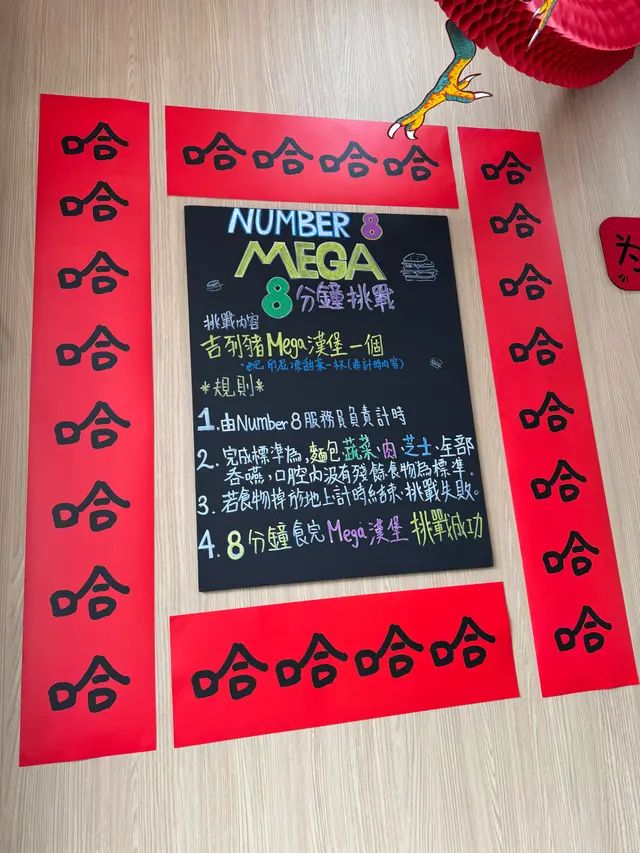 哈哈哈哈
哈
哈
哈
哈
哈
哈
哈
哈
NUMBER 8
MEGA
8分鐘挑戰
挑戰內容
吉列豬Mega漢堡一個
*規則*
1.由Number 8服務員負責計時
2.完成標準為,麵包.蔬菜.肉.芝士.全部
吞嚥、口腔內沒有殘餘食物為標準.
3.若食物掉放地上計時結束,挑戰失敗。
4.8分鐘食完Mega漢堡挑戰成功
哈
哈
哈
哈
哈
哈
哈
哈
为
哈哈哈哈